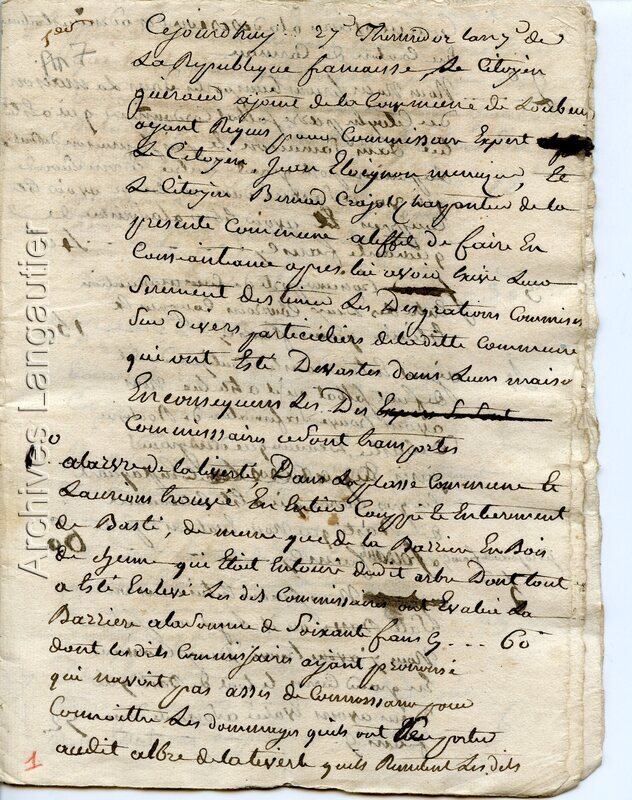 Cejourdhuy 27e Thermidor lan 7e de
La Republique francaisse, Le Citoyen
gueraud ajoint de la Commune de Loubens
ayant Requis pour Commissaire Expert
Le Citoyen Jean Eloignon menuzier, Et
Le Citoyen Bernad Crajols Charpentier de la
presente Commune a leffet de faire En
Consaiance apres lui avoir Exive Leur
Serement destimer Les Degrations Commises
Sur divers particuliers de la ditte Commune
qui ont Esté Devastes dans Leurs maiso
En consequens Les Des
Commissaires ce sont transportes
a larvre de la liverté, Dans la plasse Commune Et
Laurions trouvé En Entier Couppé Et Entierment
de Basté, de meme que de la Barriere En Bois
de chenne qui Etait Entoure dudit arbre Dont tout
a Esté Enlevé Les dits Commissaires ont Evalué La
Barriere a la Somme de Soixante frans ... 60
dont les dits Commissaires ayant
qui navoit pas asses de Connoissans pour
Connoittre Les dommages quils ont
audit albre de la liverté quils Rendent Les dits
Archives Langautier
1